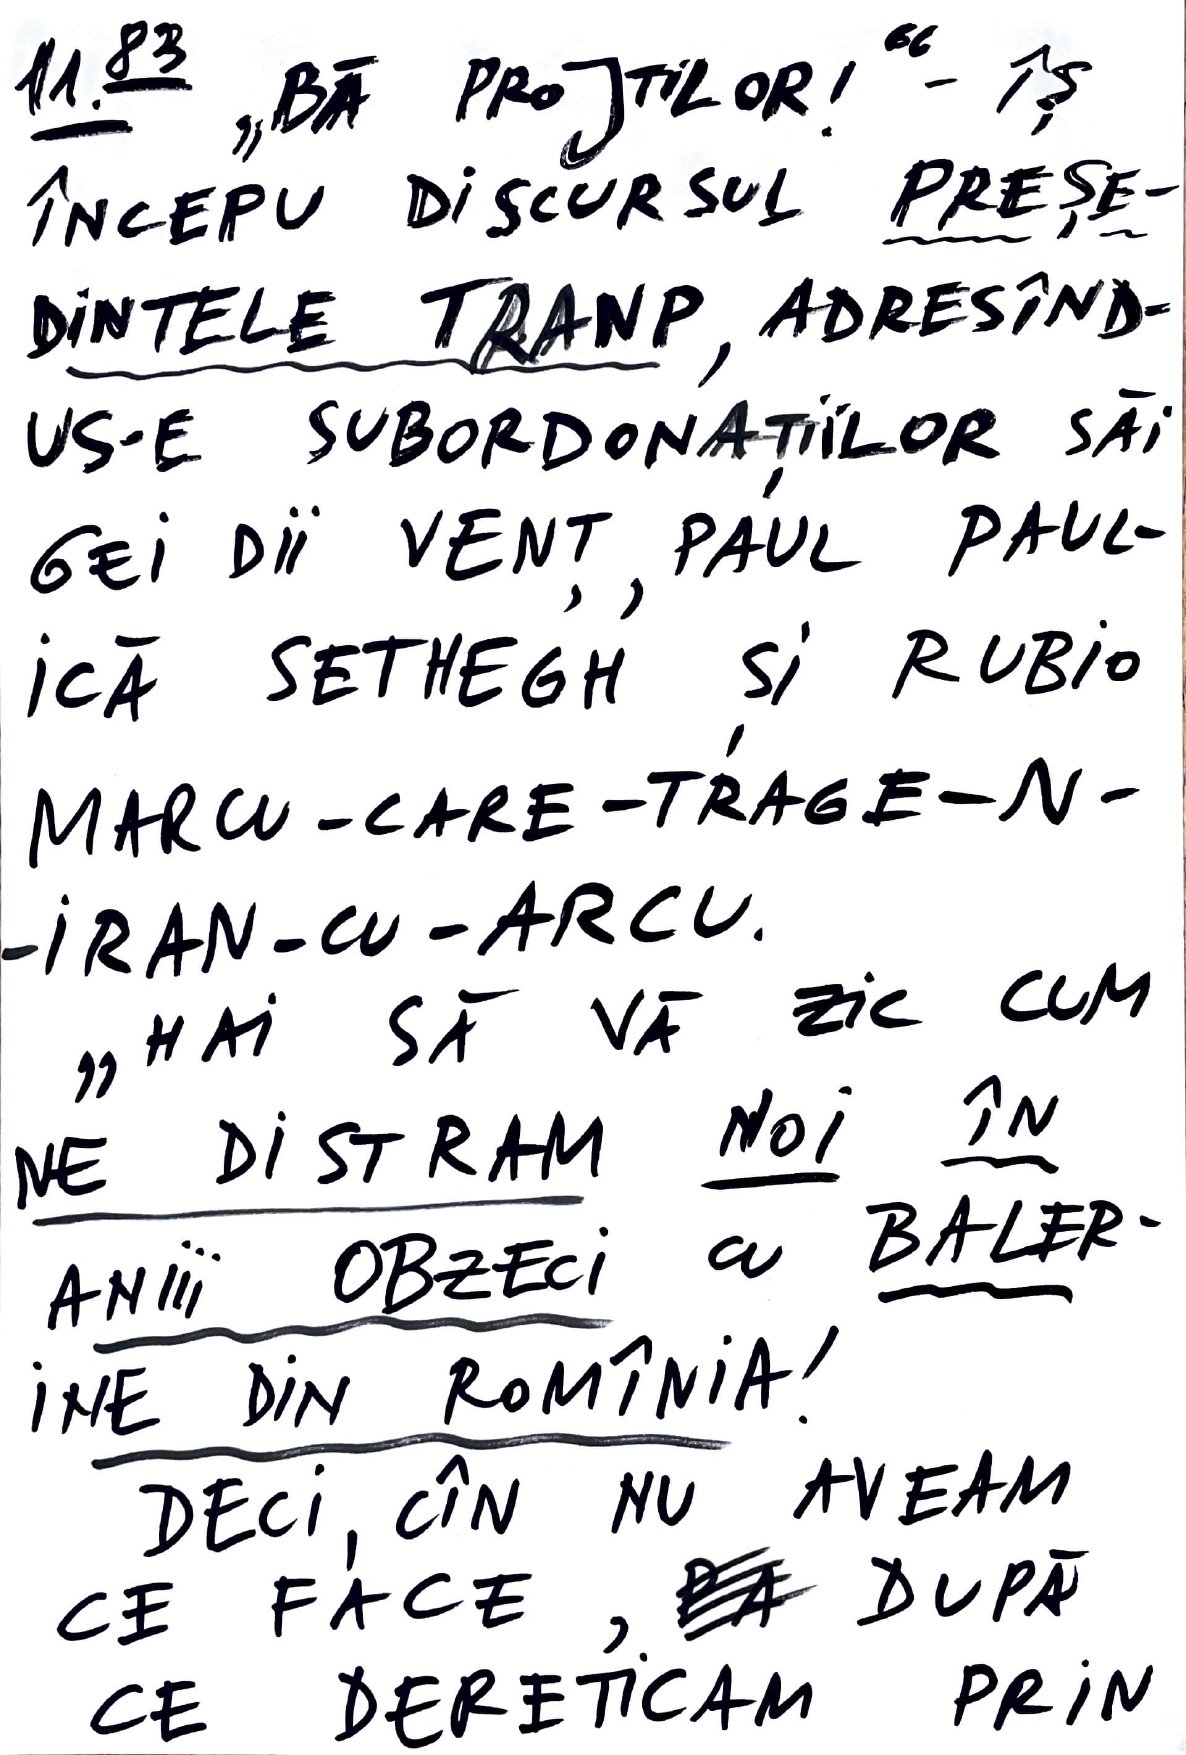 11.83 „BĂ PROJTILOR!“ - ÎȘ
ÎNCEPU DISCURSUL PREȘE-
DINTELE TRANP, ADRESÎND-
US-E SUBORDONAȚIILOR SĂI
GEI DII VENȚ, PAUL PAUL-
ICĂ SETHEGH ȘI RUBIO
MARCU-CARE-TRAGE-N-
-IRAN-CU-ARCU.
„HAI SĂ VĂ ZIC CUM
NE DISTRAM NOI ÎN
ANIII OBZECI CU BALER-
INE DIN ROMÎNIA!
DECI, CÎN NU AVEAM
CE FACE, DUPĂ
CE DERETICAM PRIN